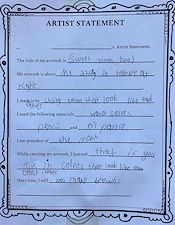 ARTIST STATEMENT
's Artist Statement.
The title of my artwork is (sweet moon time)
My artwork is about Me sitting in nature at
night
I made it by using colors that look like each
other
I used the following materials water colors
pencil and oil pastel
I am proudest of the moon
While creating my artwork, I learned that if you
mix in colors that look like each
other other
Next time, I will not make brown